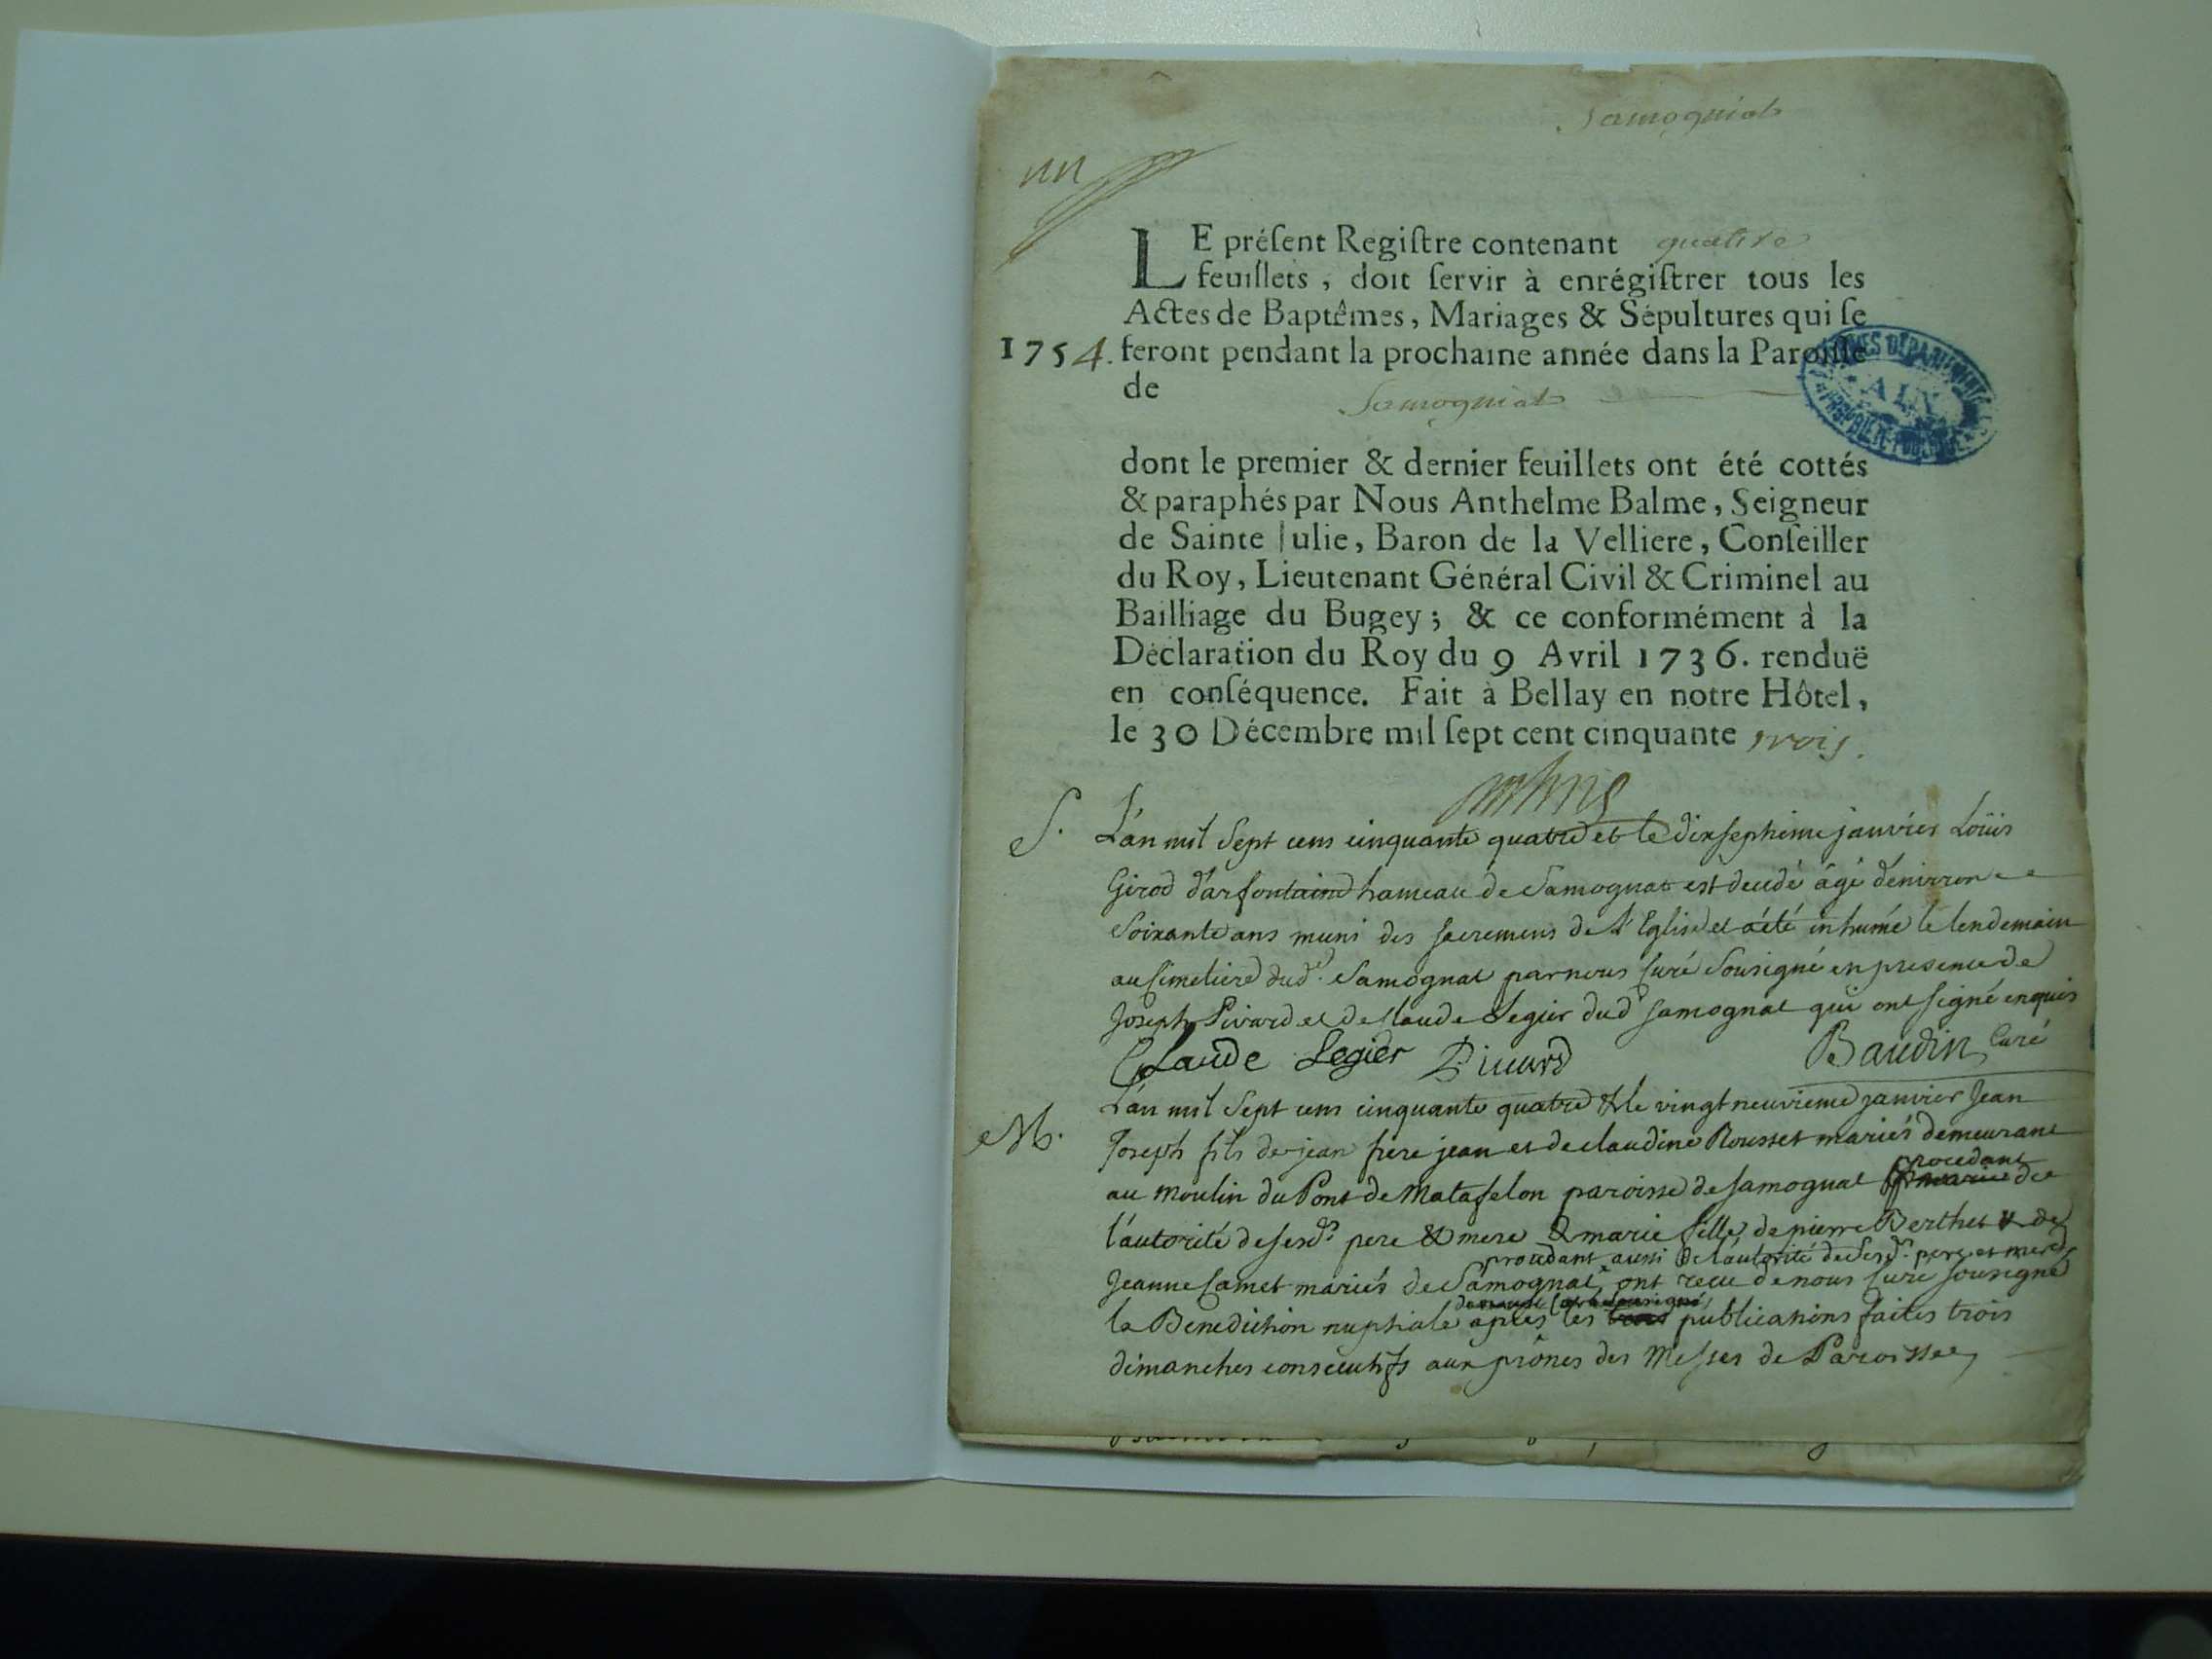 Samogniat
un
LE préſent Regiſtre contenant quatre
feuillets, doit ſervir à enrégiſtrer tous les
Actes de Baptêmes, Mariages & Sépultures qui ſe
1754. feront pendant la prochaine année dans la Paroiſſe
de Samogniat
ARCHIVES DÉPARTEMENTALES
AIN
PROPRIÉTÉ PUBLIQUE
dont le premier & dernier feuillets ont été cottés
& paraphés par Nous Anthelme Balme, Seigneur
de Sainte Julie, Baron de la Velliere, Conſeiller
du Roy, Lieutenant Général Civil & Criminel au
Bailliage du Bugey; & ce conformément à la
Déclaration du Roy du 9 Avril 1736. renduë
en conſéquence. Fait à Bellay en notre Hôtel,
le 30 Décembre mil ſept cent cinquante trois.
S. L'an mil Sept cens cinquante quatre et le dixseptieme janvier Loüis
Girod d'arfontaine hameau de Samognat est decedé âgé d'environ
Soixante ans muni des sacremens de l'Eglise et a été inhumé le lendemain
au Cimetiere dud. Samognat par nous Curé Sousigné en presence de
Joseph Pivard et de Claude Legier dud Samognat qui ont signé enquis
Claude Legier Pivard Baudin Curé
M. L'an mil Sept cens cinquante quatre & le vingt neuvieme janvier Jean
Joseph fils de jean frere jean et de claudine Rousset mariés demeurant
au moulin du Pont de Matafelon paroisse de Samognat procedant de
l'autorité de sesds pere & mere & marie fille de pierre Berthet & de
Jeanne Camet mariés de Samognat procedant aussi de l'autorité de sesds pere et mere ont recu de nous Curé sousigné
la Benediction nuptiale après les publications faites trois
dimanches consecutifs aux prônes des Messes de Paroisse